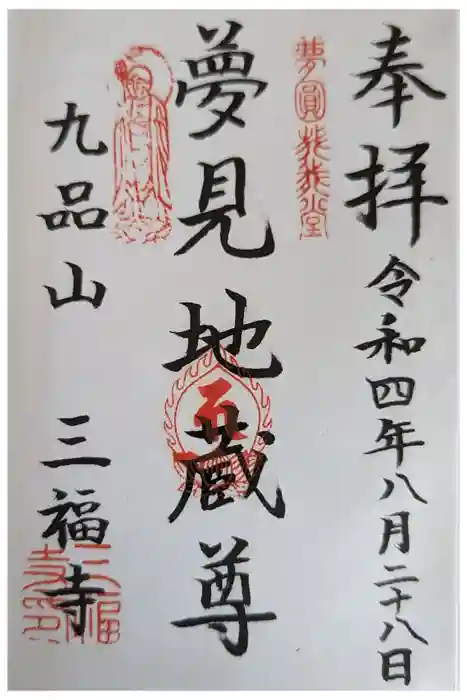 奉拝
令和四年八月二十八日
夢見地蔵尊
九品山 三福寺
三福
寺印